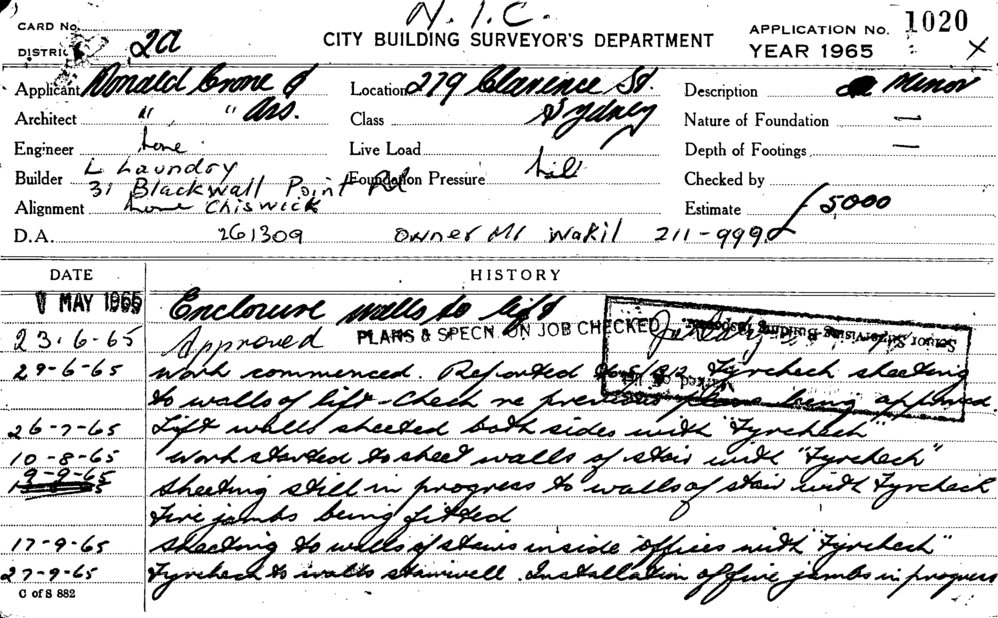 N.I.C.
CARD No.
DISTRICT 2a
CITY BUILDING SURVEYOR'S DEPARTMENT
APPLICATION No. 1020
YEAR 1965 X
Applicant Ronald Crone &
Location 279 Clarence St.
Description Minor
Architect " " Ass.
Class Sydney
Nature of Foundation —
Engineer None
Live Load
Depth of Footings —
Builder L Laundry
31 Blackwall Point Rd
Foundation Pressure Nil
Checked by
Alignment None Chiswick
Estimate £5000
D.A. 261309 Owner Mr Wakil 211-999
DATE HISTORY
MAY 1965 Enclosure walls to lift
23.6-65 Approved PLANS & SPECN. ON JOB CHECKED
Senior Supervising Building Inspector
29-6-65 Work commenced. Reported Fyrcheck sheeting
to walls of lift - Check re previous plans being approved
26-7-65 Lift walls sheeted both sides with "Fyrcheck"
10-8-65 Work started to sheet walls of stair with "Fyrcheck"
9-9-65 Sheeting still in progress to walls of stair with Fyrcheck
Fire jambs being fitted
17-9-65 Sheeting to walls of stairs inside offices with "Fyrcheck"
27-9-65 Fyrcheck to walls stairwell. Installation of fire jambs in progress
C of S 882